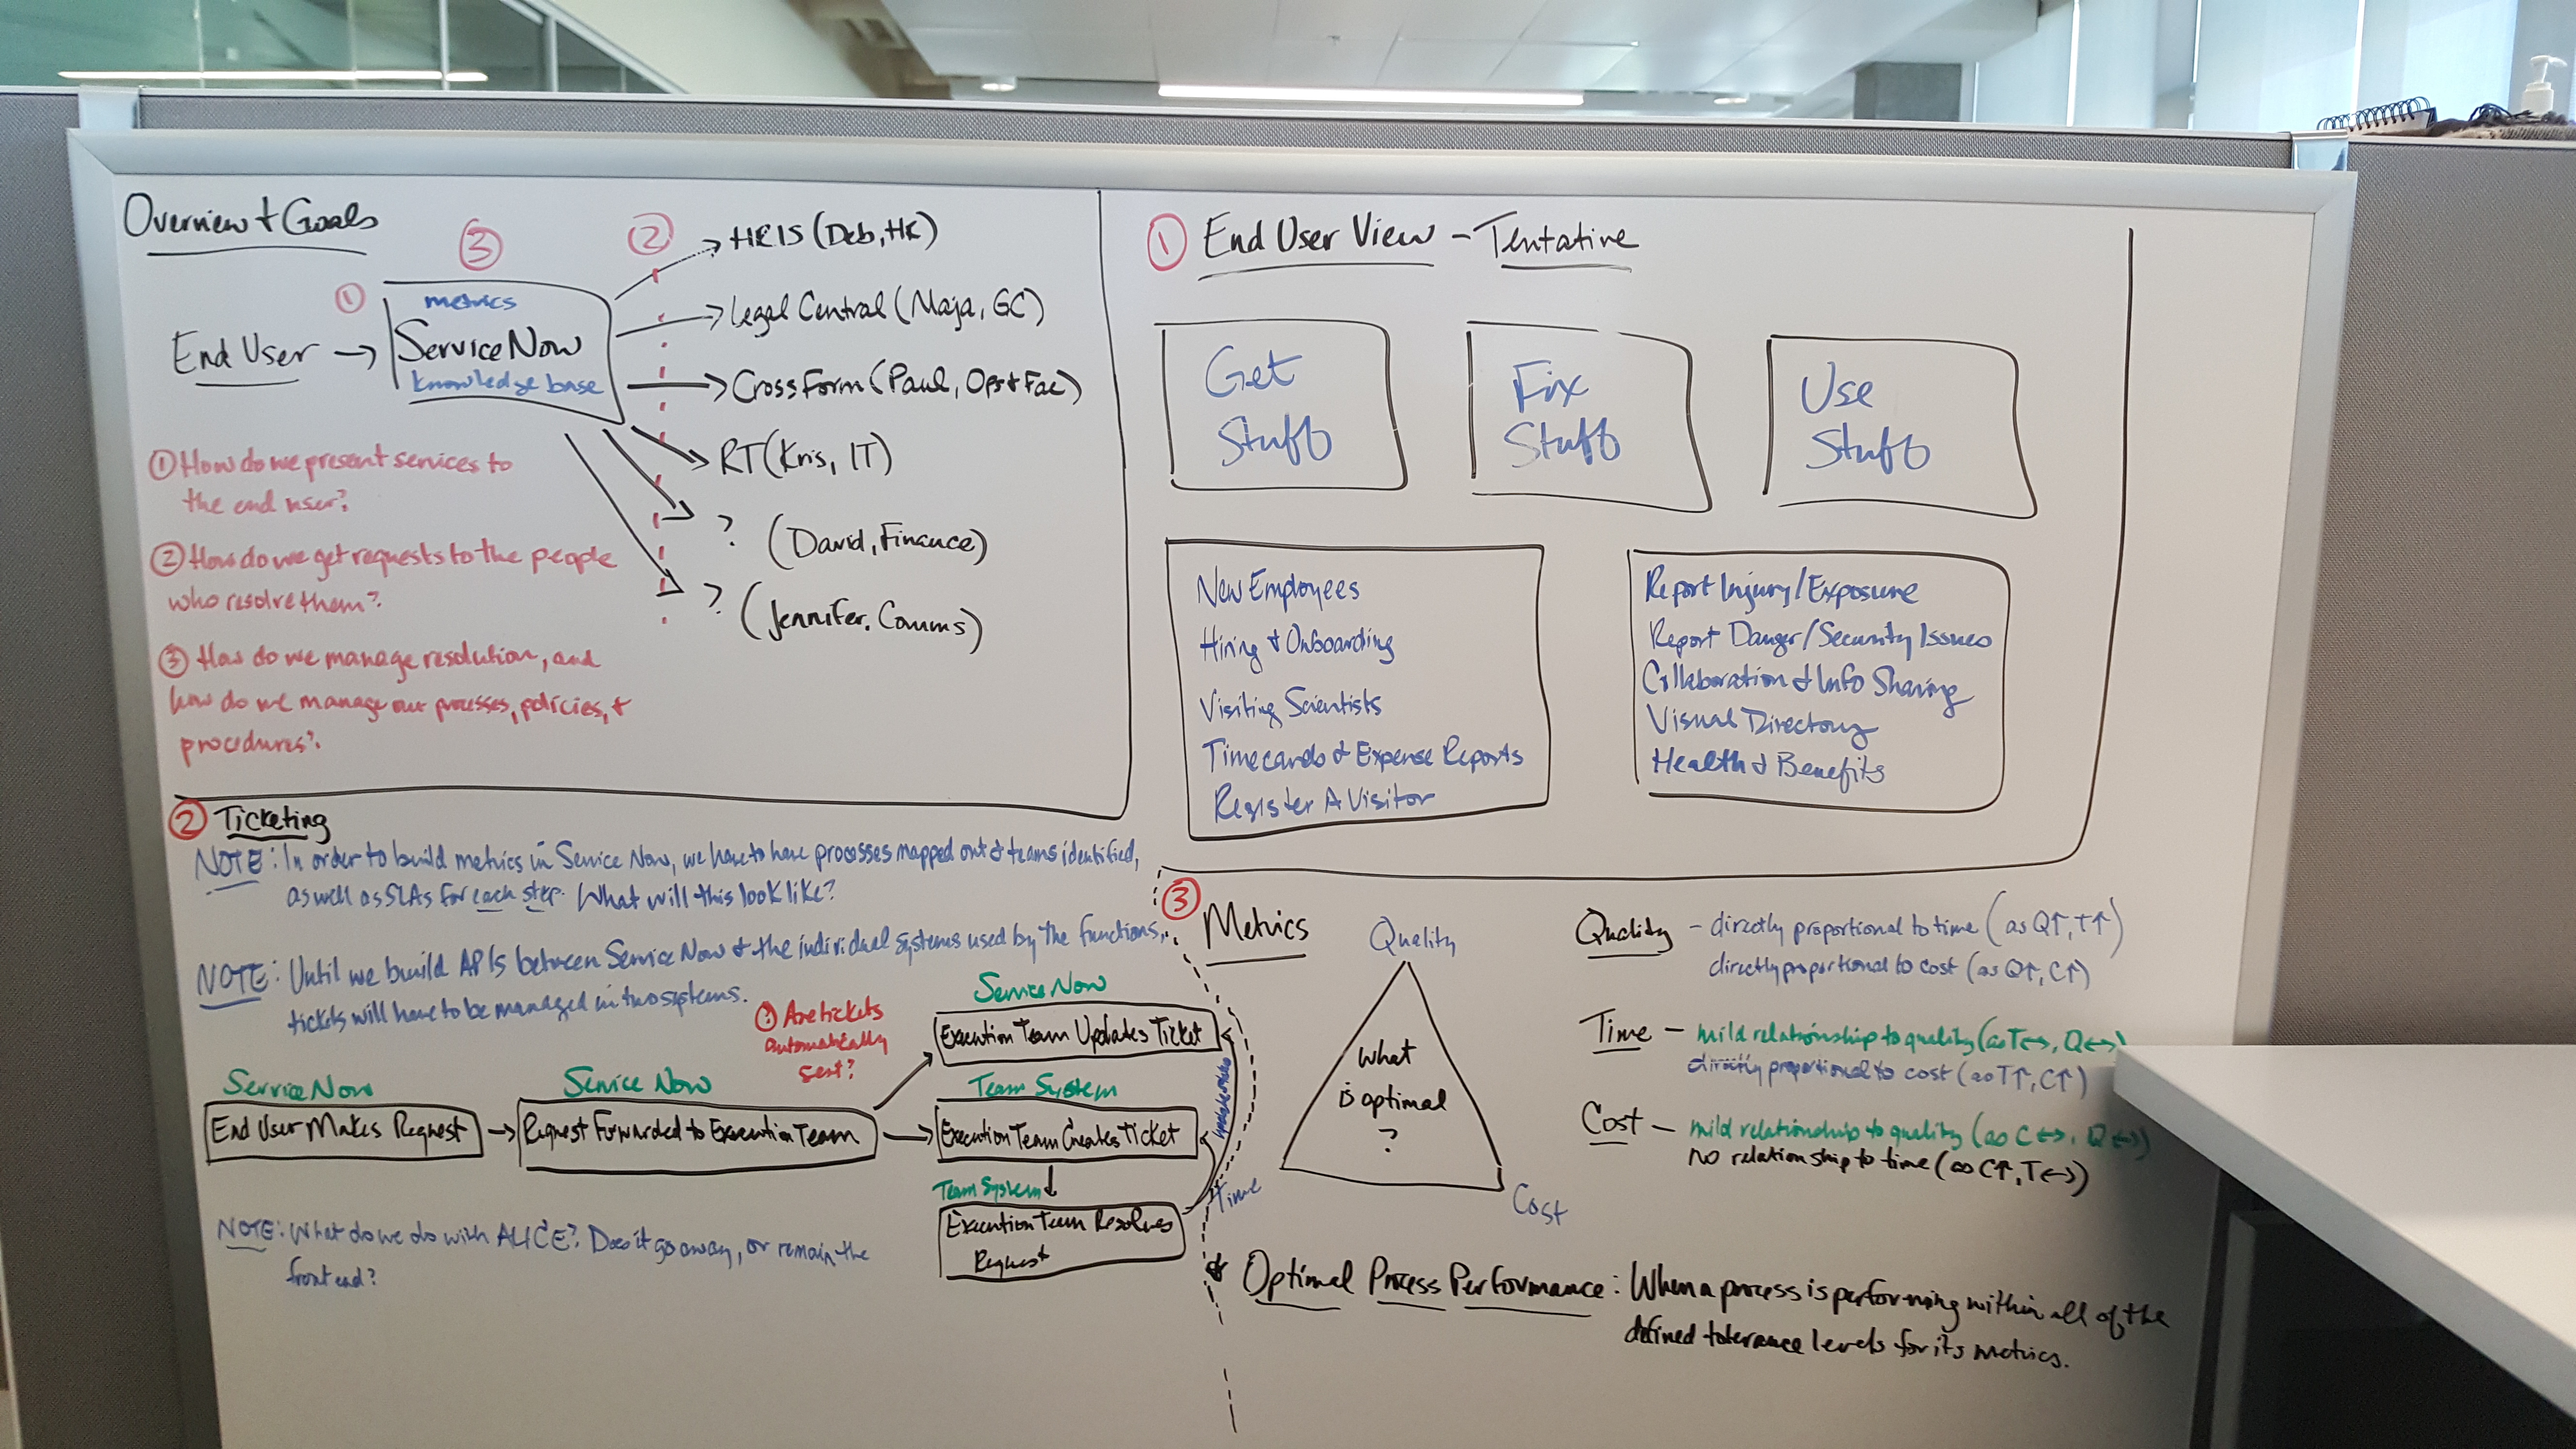 Overview + Goals
③
②
①
metrics
End User → ServiceNow
knowledge base
HRIS (Deb, HR)
Legal Central (Maja, GC)
CrossForm (Paul, Ops + Fac)
RT (Kris, IT)
? (David, Finance)
? (Jennifer, Comms)
① How do we present services to
the end user?
② How do we get requests to the people
who resolve them?
③ How do we manage resolution, and
how do we manage our processes, policies, +
procedures?
① End User View - Tentative
Get
Stuff
Fix
Stuff
Use
Stuff
New Employees
Hiring + Onboarding
Visiting Scientists
Timecards + Expense Reports
Register A Visitor
Report Injury/Exposure
Report Danger/Security Issues
Collaboration + Info Sharing
Visual Directory
Health + Benefits
② Ticketing
NOTE: In order to build metrics in Service Now, we have to have processes mapped out + teams identified,
as well as SLAs for each step. What will this look like?
NOTE: Until we build APIs between Service Now + the individual systems used by the functions,
tickets will have to be managed in two systems.
? Are tickets
automatically
sent?
ServiceNow
End User Makes Request
Service Now
Request Forwarded to Execution Team
ServiceNow
Execution Team Updates Ticket
Team System
Execution Team Creates Ticket
Team System
Execution Team Resolves
Request
NOTE: What do we do with ALICE? Does it go away, or remain the
front end?
③ Metrics
Quality
What
is optimal
?
Time
Cost
Quality - directly proportional to time (as Q↑, T↑)
directly proportional to cost (as Q↑, C↑)
Time - mild relationship to quality (as T↔, Q↔)
directly proportional to cost (as T↑, C↑)
Cost - mild relationship to quality (as C↔, Q↔)
no relationship to time (as C↑, T↔)
* Optimal Process Performance: When a process is performing within all of the
defined tolerance levels for its metrics.